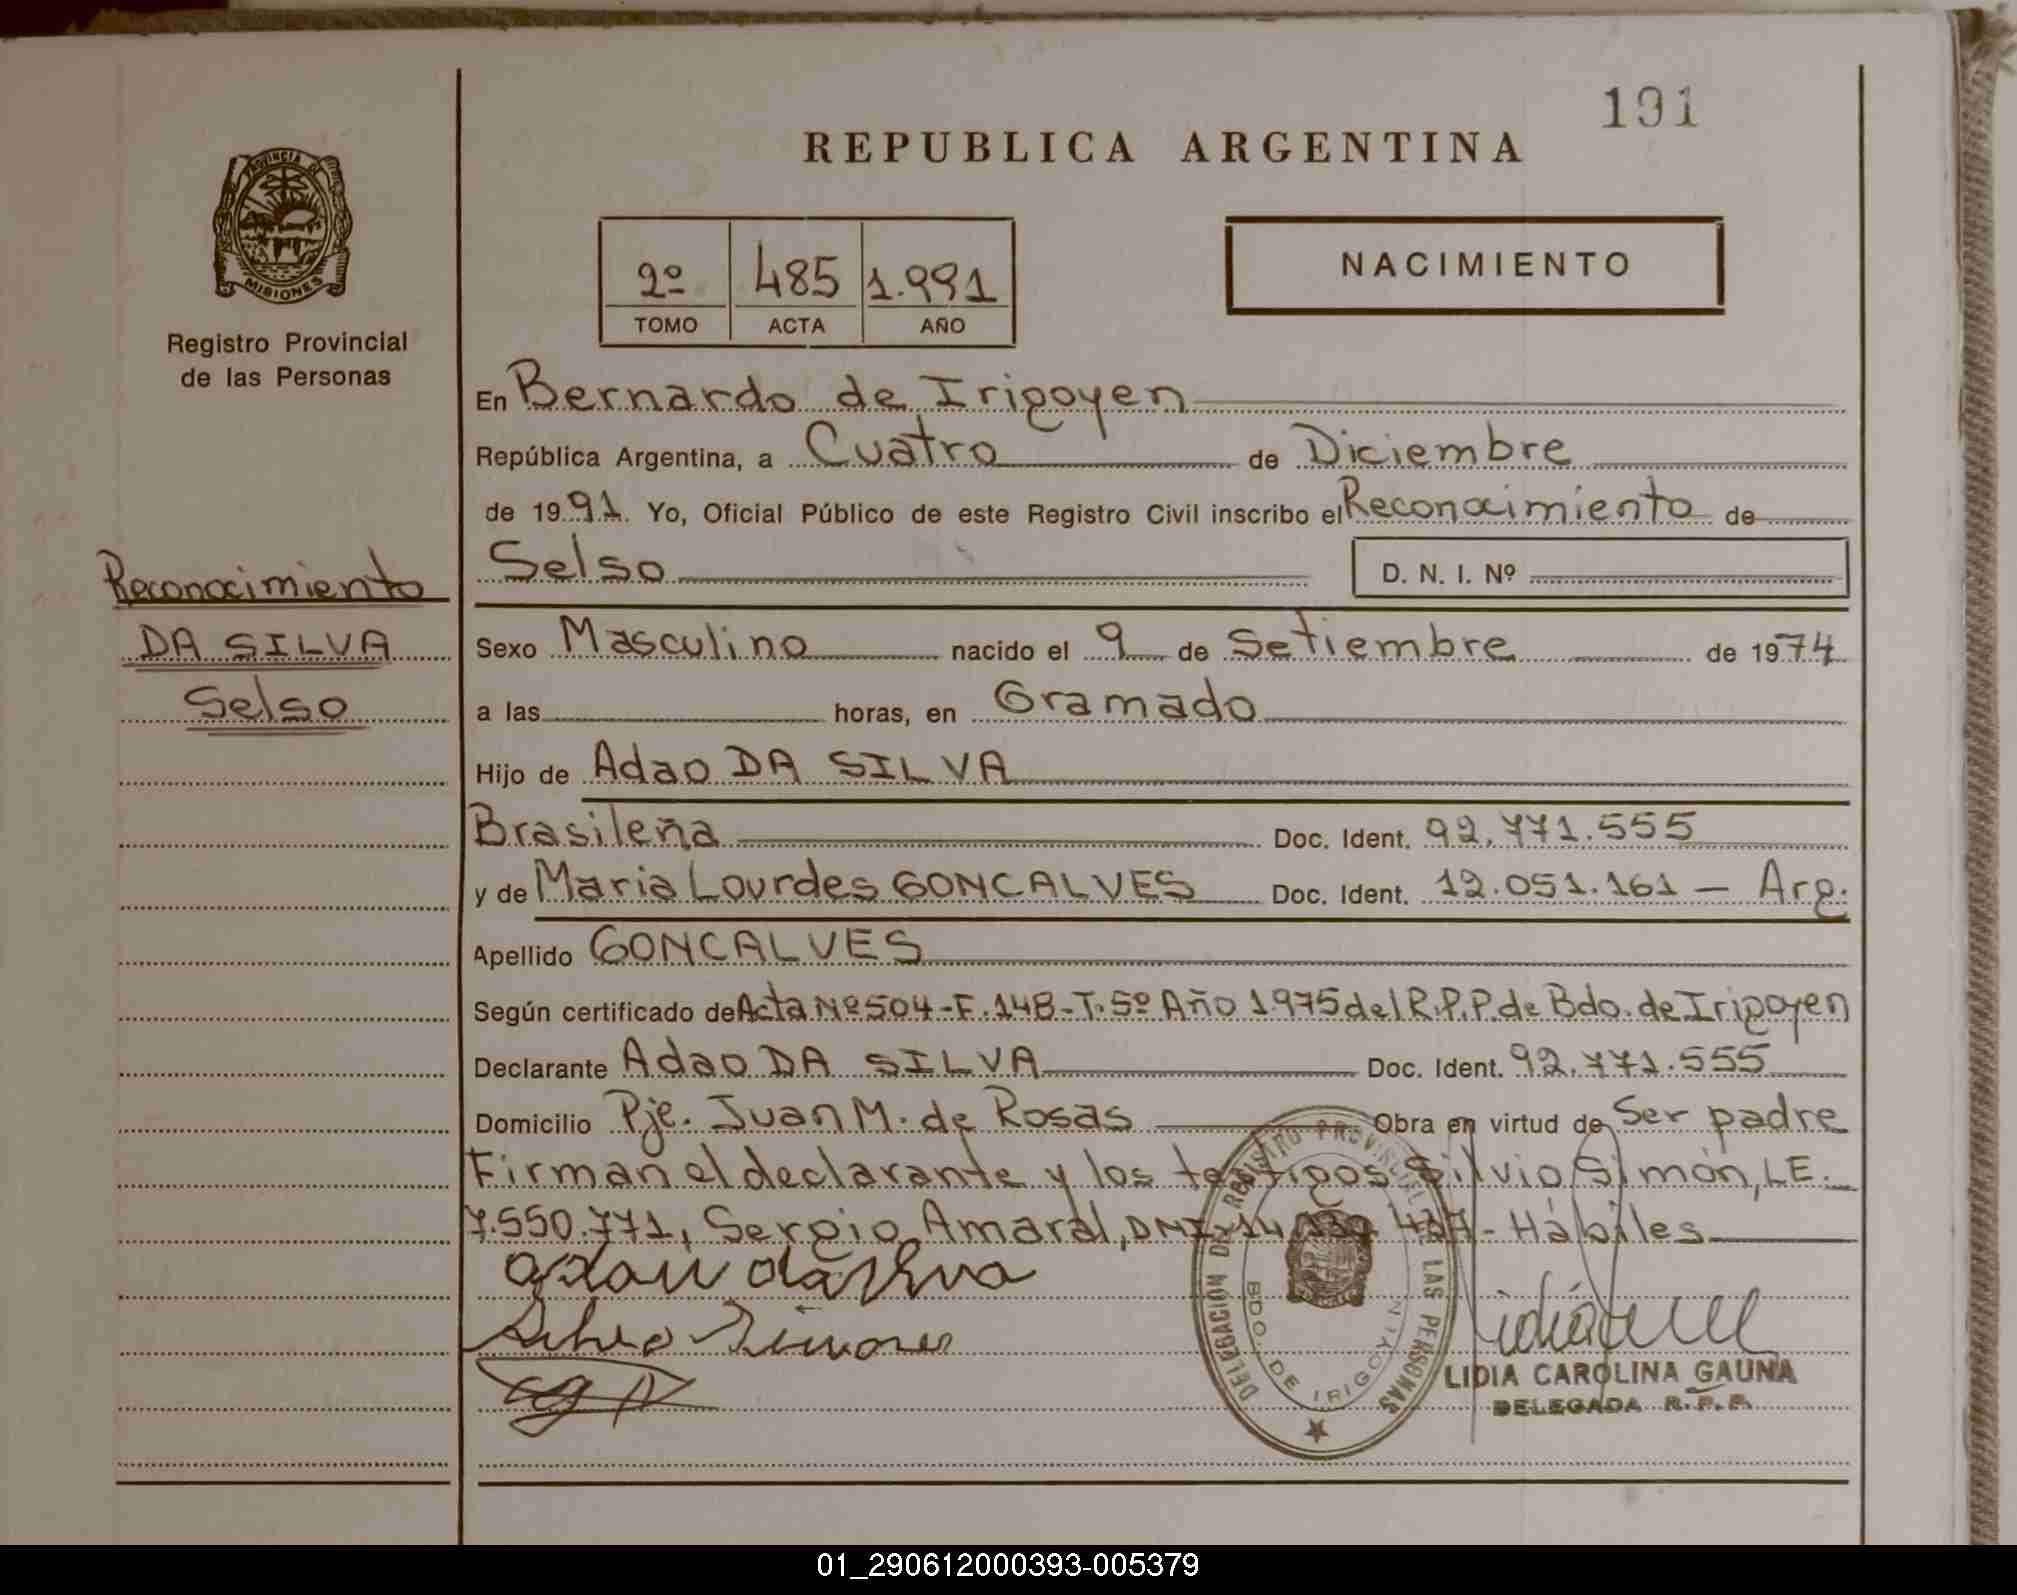 191
REPUBLICA ARGENTINA
PROVINCIA DE
MISIONES
Registro Provincial
de las Personas
2º 485 1.991
TOMO ACTA AÑO
NACIMIENTO
En Bernardo de Irigoyen
República Argentina, a Cuatro de Diciembre
de 1991. Yo, Oficial Público de este Registro Civil inscribo el Reconocimiento de
Selso D. N. I. Nº
Reconocimiento
DA SILVA
Selso
Sexo Masculino nacido el 9 de Setiembre de 1974
a las horas, en Gramado
Hijo de Adao DA SILVA
Brasileña Doc. Ident. 92.771.555
y de Maria Lourdes GONCALVES Doc. Ident. 12.051.161 - Arg.
Apellido GONCALVES
Según certificado de Acta Nº 504-F.148-T.5º Año 1.975 del R.P.P. de Bdo. de Irigoyen
Declarante Adao DA SILVA Doc. Ident. 92.771.555
Domicilio Pje. Juan M. de Rosas Obra en virtud de Ser padre
Firman el declarante y los testigos Silvio Simón, L.E.
7.550.771, Sergio Amaral, DNI. 14. - Hábiles
adau da silva
DELEGACION DEL REGISTRO PROVINCIAL DE LAS PERSONAS
BDO. DE IRIGOYEN
LIDIA CAROLINA GAUNA
DELEGADA R. P. P.
01_290612000393-005379